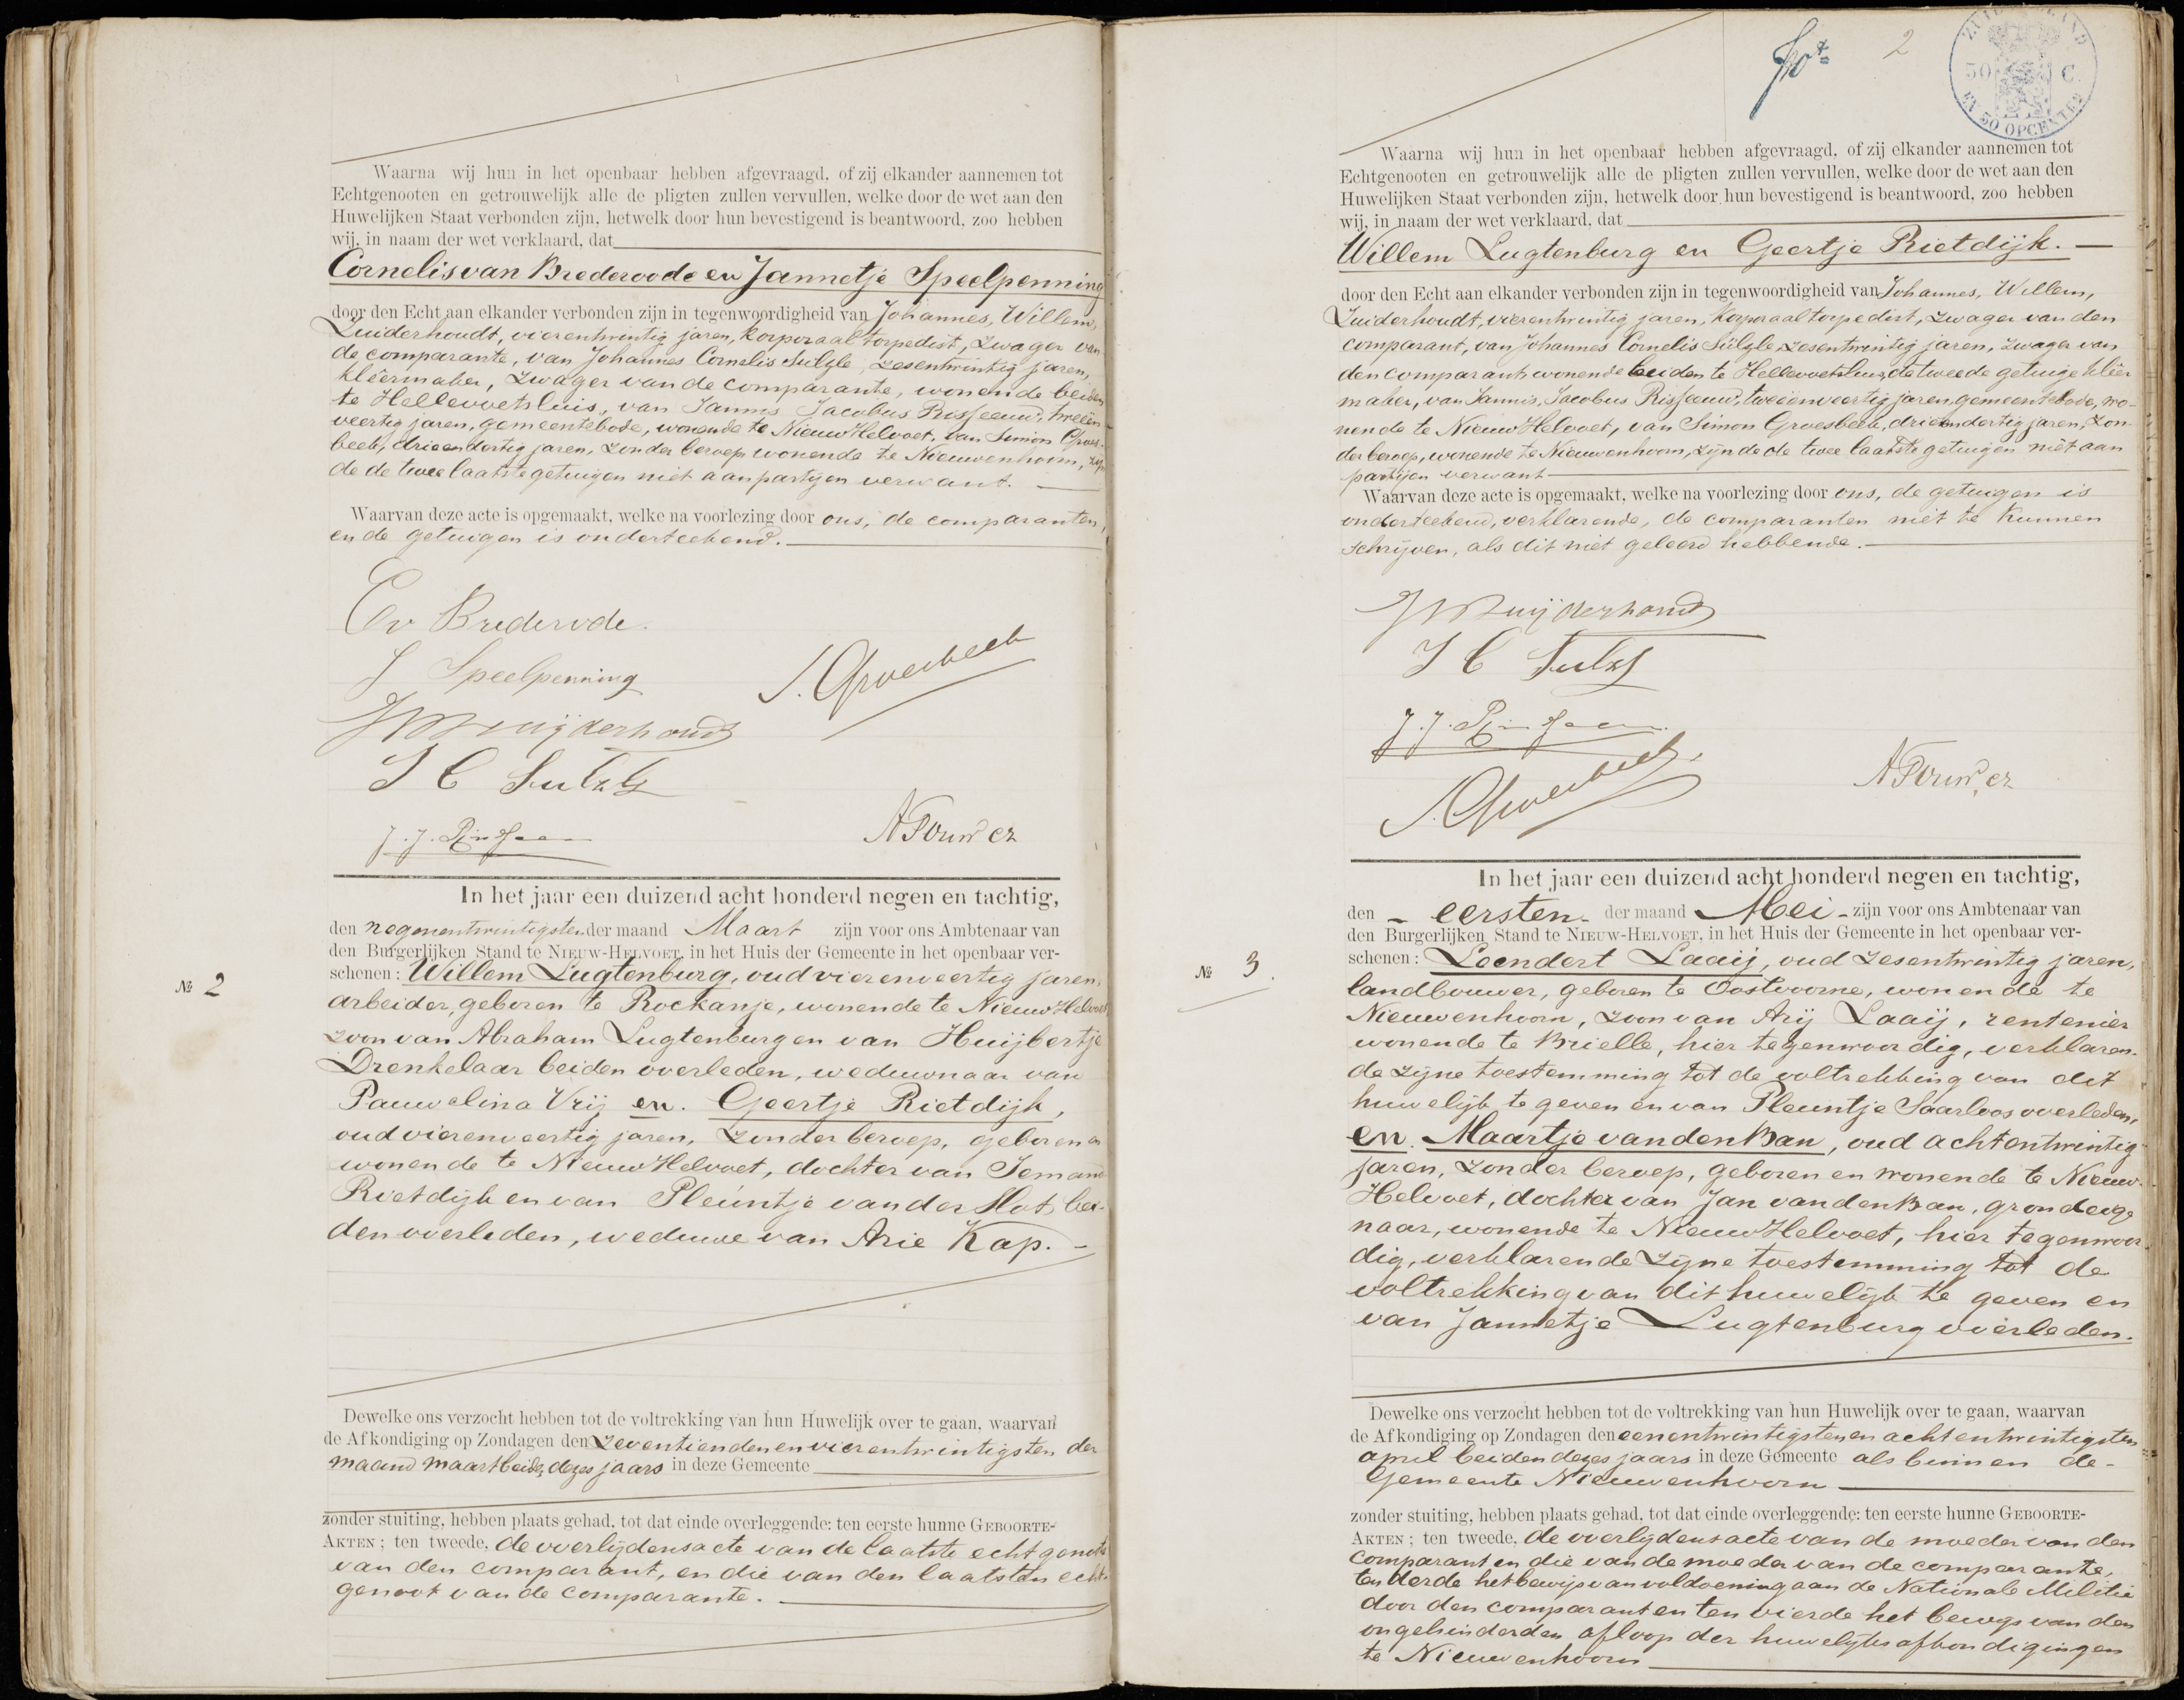 Waarna wij hun in het openbaar hebben afgevraagd, of zij elkander aannemen tot
Echtgenooten en getrouwelijk alle de pligten zullen vervullen, welke door de wet aan den
Huwelijken Staat verbonden zijn, hetwelk door hun bevestigend is beantwoord, zoo hebben
wij, in naam der wet verklaard, dat
Cornelis van Brederoode en Jannetje Speelpenning
door den Echt aan elkander verbonden zijn in tegenwoordigheid van Johannes, Willem,
Zuiderhoudt, vierentwintig jaren, korporaal torpedist, zwager van
de comparante, van Johannes Cornelis Sulzle, zesentwintig jaren,
kléermaker, zwager van de comparante, wonende beiden
te Hellevoetsluis, van Jannis Jacobus Risseeuw, tweeën-
veertig jaren, gemeentebode, wonende te Nieuw Helvoet, van Simon Groes-
beek, drieendertig jaren, zonder beroep wonende te Nieuwenhoorn, zijn
de de twee laatste getuigen niet aan partijen verwant.
Waarvan deze acte is opgemaakt, welke na voorlezing door ons, de comparanten,
en de getuigen is onderteekend.
Cv Brederode.
J Speelpenning
S. Groesbeek
JW Zuijderhoudt
J C Sulzle
J. J. Risseeuw
N Pouwer
In het jaar een duizend acht honderd negen en tachtig,
den negenentwintigsten der maand Maart zijn voor ons Ambtenaar van
den Burgerlijken Stand te Nieuw-Helvoet, in het Huis der Gemeente in het openbaar ver-
schenen: Willem Lugtenburg, oud vierenveertig jaren,
№ 2
arbeider, geboren te Rockanje, wonende te Nieuw Helvoet
zoon van Abraham Lugtenburg en van Huijbertje
Drenkelaar beiden overleden, weduwnaar van
Pauwelina Vrij en. Geertje Rietdijk,
oud vierenveertig jaren, zonder beroep, geboren en
wonende te Nieuw Helvoet, dochter van Leman
Rietdijk en van Pleuntje van der Slot, bei-
den overleden, weduwe van Arie Kap. -
Dewelke ons verzocht hebben tot de voltrekking van hun Huwelijk over te gaan, waarvan
de Afkondiging op Zondagen den zeventienden en vierentwintigsten der
maand maart beide, dezes jaars in deze Gemeente
zonder stuiting, hebben plaats gehad, tot dat einde overleggende: ten eerste hunne Geboorte-
Akten; ten tweede, de overlijdensacte van de laatste echtgenoote
van den comparant, en die van den laatsten echt-
genoot van de comparante.
2
ZUID-HOLLAND
50 C.
EN 50 OPCENTEN
Waarna wij hun in het openbaar hebben afgevraagd, of zij elkander aannemen tot
Echtgenooten en getrouwelijk alle de pligten zullen vervullen, welke door de wet aan den
Huwelijken Staat verbonden zijn, hetwelk door hun bevestigend is beantwoord, zoo hebben
wij, in naam der wet verklaard, dat
Willem Lugtenburg en Geertje Rietdijk. -
door den Echt aan elkander verbonden zijn in tegenwoordigheid van Johannes, Willem,
Zuiderhoudt, vierentwintig jaren, korporaal torpedist, zwager van den
comparant, van Johannes Cornelis Sülzle, zesentwintig jaren, zwager van
den comparant, wonende beiden te Hellevoetsluis, de tweede getuige kléer
maker, van Jannis, Jacobus Risseeuw, tweeenveertig jaren, gemeentebode, wo-
nende te Nieuw Helvoet, van Simon Groesbeek, drieendertig jaren, zon-
der beroep, wonende te Nieuwenhoorn, zijnde de twee laatste getuigen niet aan
partijen verwant
Waarvan deze acte is opgemaakt, welke na voorlezing door ons, de getuigen is
onderteekend, verklarende, de comparanten niet te kunnen
schrijven, als dit niet geleerd hebbende.
JW Zuijderhoudt
J C Sulzle
J. J. Risseeuw
S. Groesbeek
N Pouwer
In het jaar een duizend acht honderd negen en tachtig,
den - eersten - der maand Mei - zijn voor ons Ambtenaar van
den Burgerlijken Stand te Nieuw-Helvoet, in het Huis der Gemeente in het openbaar ver-
schenen: Leendert Laaij, oud zesentwintig jaren,
№ 3.
landbouwer, geboren te Oostvoorne, wonende te
Nieuwenhoorn, zoon van Arij Laaij, rentenier
wonende te Brielle, hier tegenwoordig, verklaren-
de zijne toestemming tot de voltrekking van dit
huwelijk te geven en van Pleuntje Saarloos overleden,
en. Maartje van den Ban, oud achtentwintig
jaren, zonder beroep, geboren en wonende te Nieuw-
Helvoet, dochter van Jan van den Ban, grondeige
naar, wonende te Nieuw Helvoet, hier tegenwoor-
dig, verklarende zijne toestemming tot de
voltrekking van dit huwelijk te geven en
van Jannetje Lugtenburg overleden.
Dewelke ons verzocht hebben tot de voltrekking van hun Huwelijk over te gaan, waarvan
de Afkondiging op Zondagen den eenentwintigsten en achtentwintigsten
april beiden dezes jaars in deze Gemeente als binnen de-
Gemeente Nieuwenhoorn
zonder stuiting, hebben plaats gehad, tot dat einde overleggende: ten eerste hunne Geboorte-
Akten; ten tweede, de overlijdensacte van de moeder van den
comparant en die van de moeder van de comparante,
ten derde het bewijs van voldoening aan de Nationale Militie
door den comparant en ten vierde het bewijs van den
ongehinderden afloop der huwelijksafkondigingen
te Nieuwenhoorn